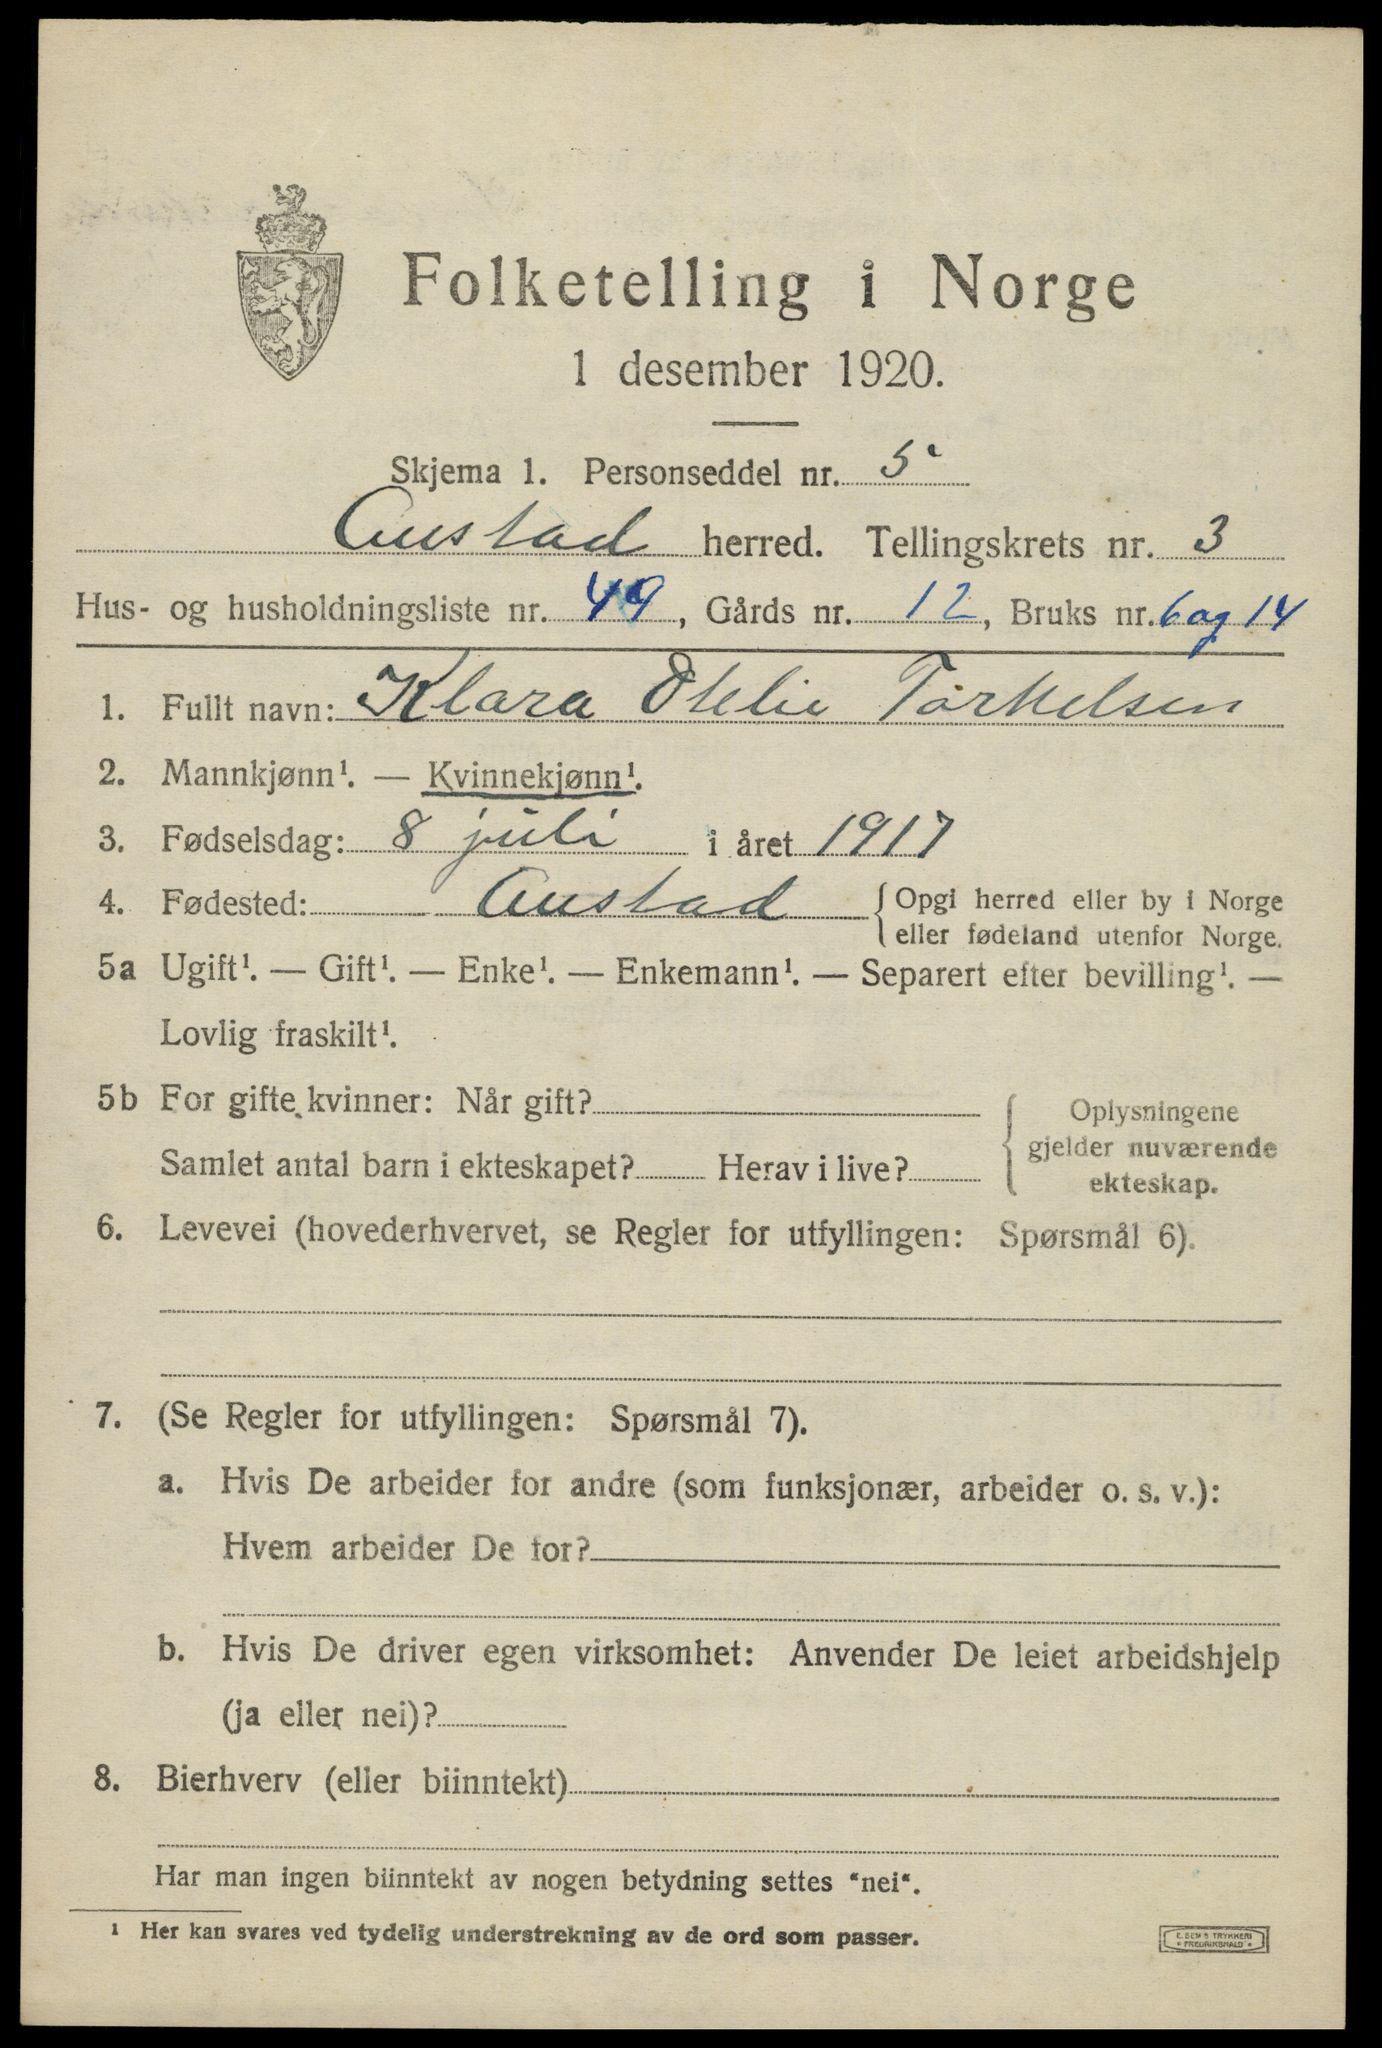 Folketelling i Norge
1 desember 1920.
Skjema 1. Personseddel nr. 5
Austad herred. Tellingskrets nr. 3
Hus- og husholdningsliste nr. 49, Gårds nr. 12, Bruks nr. 6 og 14
1. Fullt navn: Klara Otelie Torkelsen
2. Mannkjønn¹. — Kvinnekjønn¹.
3. Fødselsdag: 8 juli i året 1917
4. Fødested: Austad { Opgi herred eller by i Norge
eller fødeland utenfor Norge.
5a Ugift¹. — Gift¹. — Enke¹. — Enkemann¹. — Separert efter bevilling¹. —
Lovlig fraskilt¹.
5b For gifte kvinner: Når gift?
Samlet antal barn i ekteskapet? Herav i live?
Oplysningene
gjelder nuværende
ekteskap.
6. Levevei (hovederhvervet, se Regler for utfyllingen: Spørsmål 6).
7. (Se Regler for utfyllingen: Spørsmål 7).
a. Hvis De arbeider for andre (som funksjonær, arbeider o. s. v.):
Hvem arbeider De for?
b. Hvis De driver egen virksomhet: Anvender De leiet arbeidshjelp
(ja eller nei)?
8. Bierhverv (eller biinntekt)
Har man ingen biinntekt av nogen betydning settes "nei".
¹ Her kan svares ved tydelig understrekning av de ord som passer.
E. SEM'S TRYKKERI
* FREDRIKSHALD *